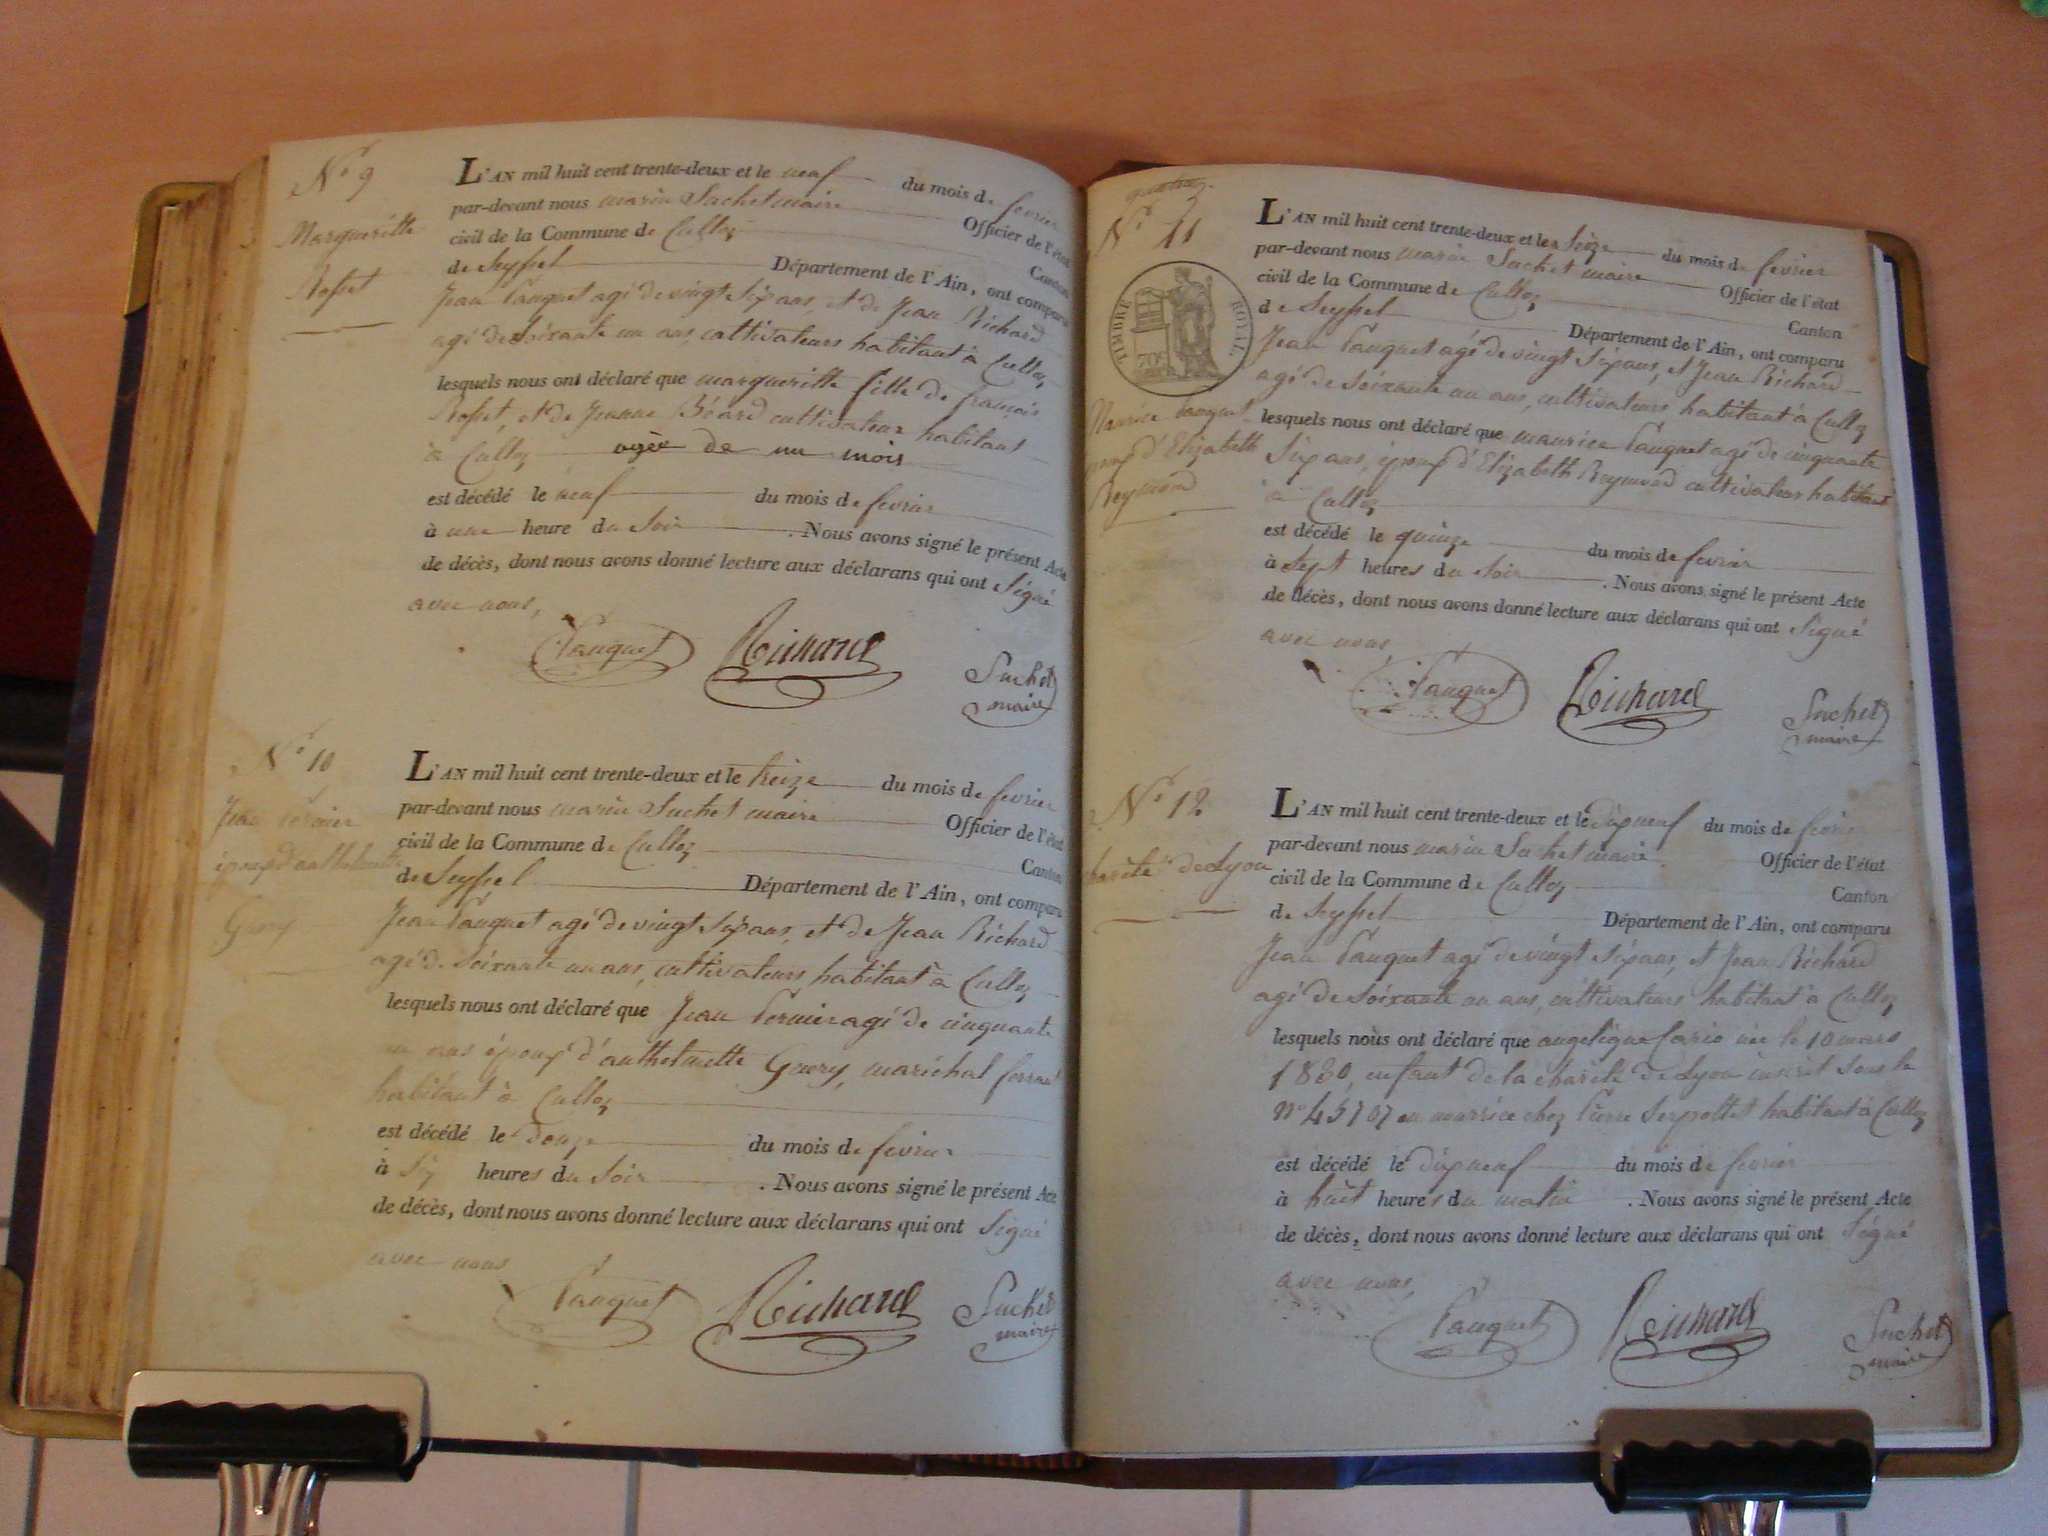 N° 9
Margueritte
Rosset
L'AN mil huit cent trente-deux et le neuf du mois de fevrier
par-devant nous marin Suchet maire Officier de l'état
civil de la Commune de Culloz Canton
de Seyssel Département de l'Ain, ont comparu
Jean Pauquet agé de vingt sixans, et de Jean Richard
agé de soixante un ans, cultivateurs habitant à Culloz
lesquels nous ont déclaré que margueritte fille de francois
Rosset, et de Jeanne Béard cultivateur habitant
à Culloz agèe de un mois
est décédé le neuf du mois de fevrier
à une heure du soir . Nous avons signé le présent Acte
de décès, dont nous avons donné lecture aux déclarans qui ont signé
avec nous,
Pauquet Richard Suchet
maire
N° 10
Jean
époux d'anthelmette
Gouvy
L'AN mil huit cent trente-deux et le treize du mois de fevrier
par-devant nous marin Suchet maire Officier de l'état
civil de la Commune de Culloz Canton
de Seyssel Département de l'Ain, ont comparu
Jean Pauquet agé de vingt sixans, et de Jean Richard
agé de soixante un ans, cultivateurs, habitant à Culloz
lesquels nous ont déclaré que Jean agé de cinquante
un ans époux d'anthelmette maréchal ferrant
habitant à Culloz
est décédé le douze du mois de fevrier
à six heures du soir . Nous avons signé le présent Acte
de décès, dont nous avons donné lecture aux déclarans qui ont signé
avec nous
Pauquet Richard Suchet
maire
N° 11
TIMBRE ROYAL
70c
Maurice Pauquet
époux d'Elizabeth
Reymond
L'AN mil huit cent trente-deux et le seize du mois de fevrier
par-devant nous marin Suchet maire Officier de l'état
civil de la Commune de Culloz Canton
de Seyssel Département de l'Ain, ont comparu
Jean Pauquet agé de vingt sixans, et Jean Richard
agé de soixante un ans, cultivateurs, habitant à Culloz
lesquels nous ont déclaré que maurice Pauquet agé de cinquante
sixans, époux d'Elizabeth Reymond cultivateur habitant
à Culloz
est décédé le quinze du mois de fevrier
à sept heures du soir . Nous avons signé le présent Acte
de décès, dont nous avons donné lecture aux déclarans qui ont signé
avec nous,
Pauquet Richard Suchet
maire
N° 12
charité de Lyon
L'AN mil huit cent trente-deux et le dixneuf du mois de fevrier
par-devant nous marin Suchet maire Officier de l'état
civil de la Commune de Culloz Canton
de Seyssel Département de l'Ain, ont comparu
Jean Pauquet agé de vingt sixans, et Jean Richard
agé de soixante un ans, cultivateurs habitant à Culloz
lesquels nous ont déclaré que angelique née le 10 mars
1830, enfant de la charité de Lyon inscrit sous le
n° 45707 en nourrice chez Pierre Serpollet habitant à Culloz
est décédé le dixneuf du mois de fevrier
à huit heures du matin . Nous avons signé le présent Acte
de décès, dont nous avons donné lecture aux déclarans qui ont signé
avec nous,
Pauquet Richard Suchet
maire